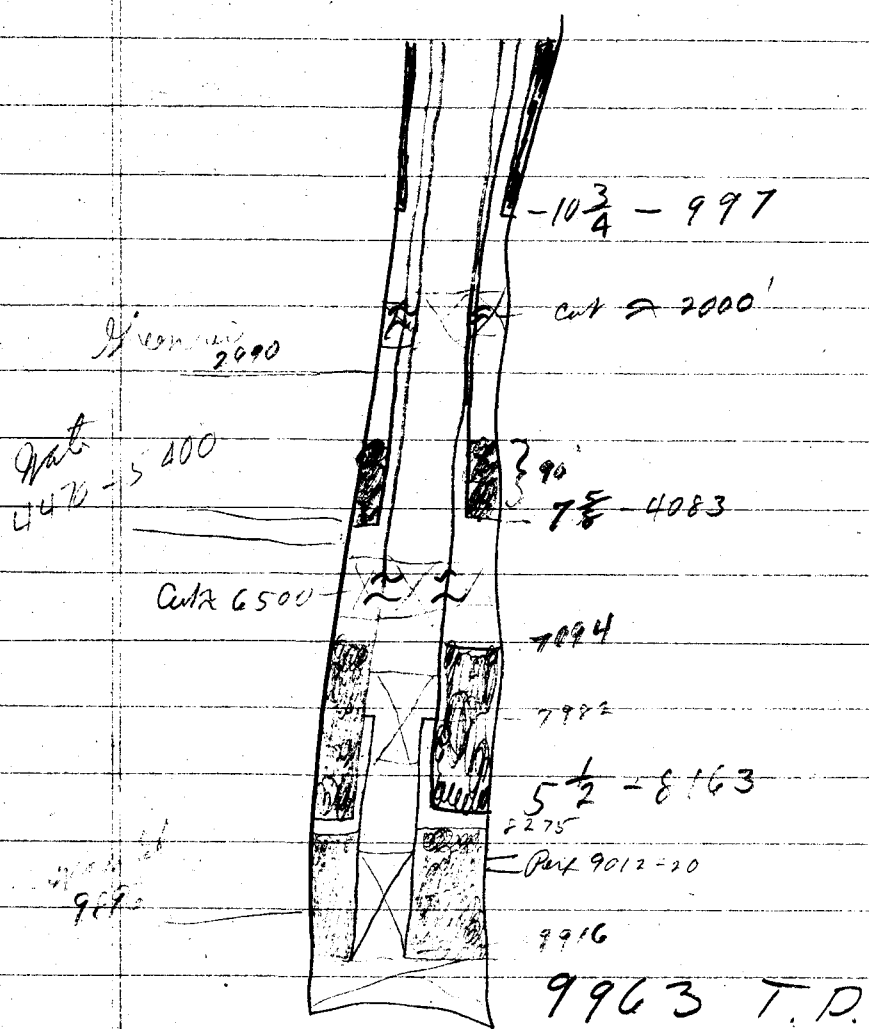 -10 3/4 - 997
cut ≈ 2000'
2990
4470-5400
90'
7 5/8 - 4083
Cut ≈ 6500
7094
7982
5 1/2 - 8163
8275
Perf 9012-20
9916
9963 T.D.